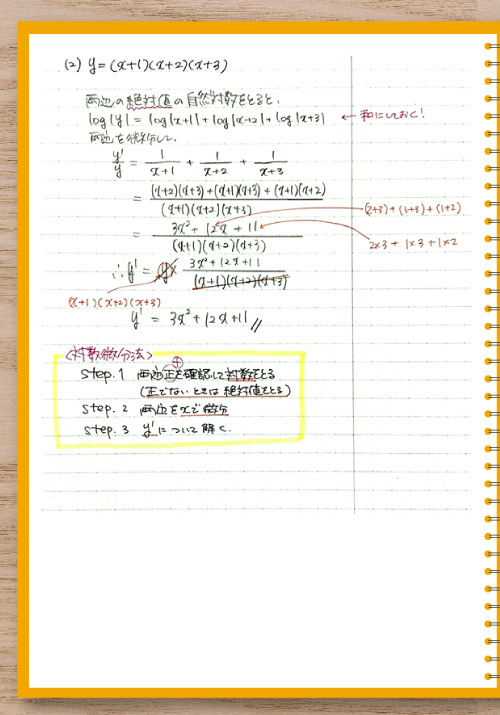 (2) y=(x+1)(x+2)(x+3)
両辺の絶対値の自然対数をとると、
log|y| = log|x+1|+log|x+2|+log|x+3| ← 和にしておく!
両辺を微分して、
y'/y = 1/(x+1) + 1/(x+2) + 1/(x+3)
= ((x+2)(x+3)+(x+1)(x+3)+(x+1)(x+2))/((x+1)(x+2)(x+3))
(2+3)+(1+3)+(1+2)
= (3x²+12x+11)/((x+1)(x+2)(x+3))
2×3+1×3+1×2
∴y' = y× (3x²+12x+11)/((x+1)(x+2)(x+3))
(x+1)(x+2)(x+3)
y' = 3x²+12x+11 //
<対数微分法>
⊕
step.1 両辺正を確認して対数をとる
(正でないときは絶対値をとる)
step.2 両辺をxで微分
step.3 y'について解く.